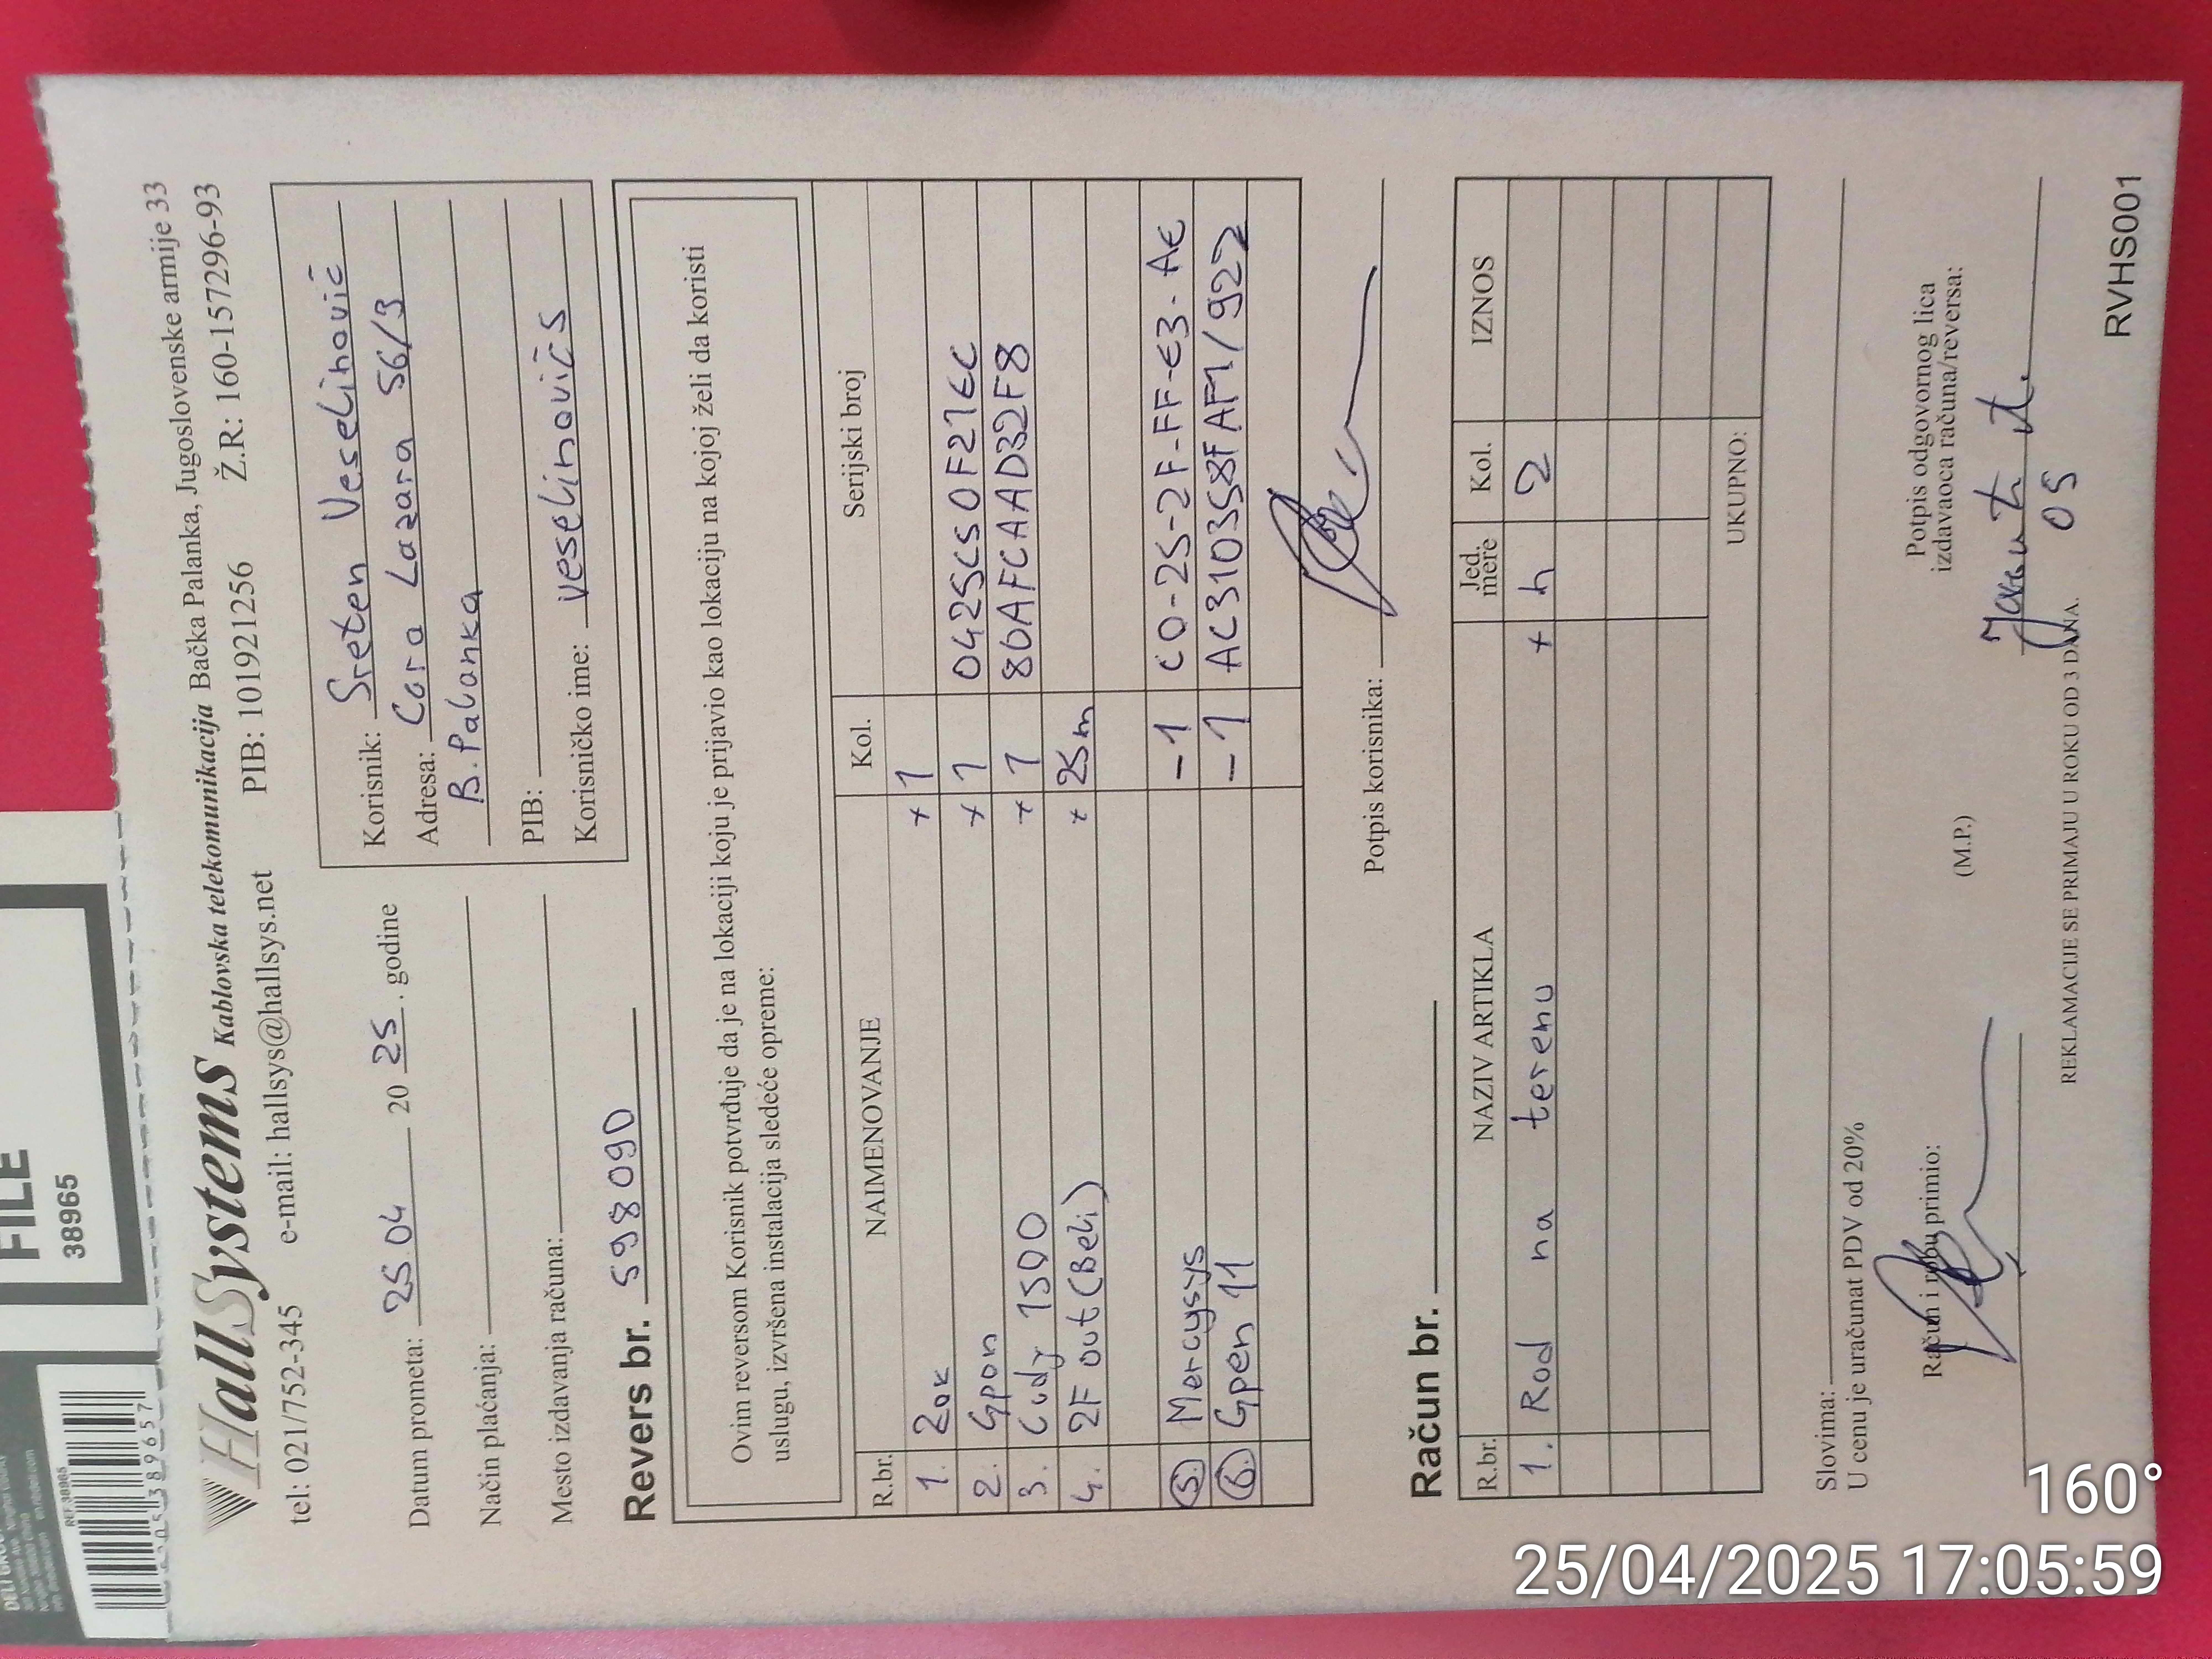 FILE
38965
REF:38965
HallSystems Kablovska telekomunikacija Bačka Palanka, Jugoslovenske armije 33
tel: 021/752-345 e-mail: hallsys@hallsys.net PIB: 101921256 Ž.R: 160-157296-93
Datum prometa: 25.04 2025. godine
Način plaćanja:
Mesto izdavanja računa:
Korisnik: Sreten Veselinović
Adresa: Cara Lazara 56/3
B. Palanka
PIB:
Korisničko ime: veselinovićs
Revers br. 598090
Ovim reversom Korisnik potvrđuje da je na lokaciji koju je prijavio kao lokaciju na kojoj želi da koristi
uslugu, izvršena instalacija sledeće opreme:
R.br. NAIMENOVANJE Kol. Serijski broj
1. Zok + 1
2. Gpon + 1 0425C50F21EC
3. Cudy 1500 + 1 80AFCAAD32F8
4. 2F out (Beli) + 25m
5. Mercysys -1 C0-25-2F-FF-E3-AE
6. Gpen 11 -1 AC310358FAF1/922
Potpis korisnika:
Račun br.
R.br. NAZIV ARTIKLA Jed. mere Kol. IZNOS
1. Rad na terenu + h 2
UKUPNO:
Slovima:
U cenu je uračunat PDV od 20%
Račun i robu primio:
(M.P.)
Potpis odgovornog lica
izdavaoca računa/reversa:
05
REKLAMACIJE SE PRIMAJU U ROKU OD 3 DANA.
RVHS001
160°
25/04/2025 17:05:59